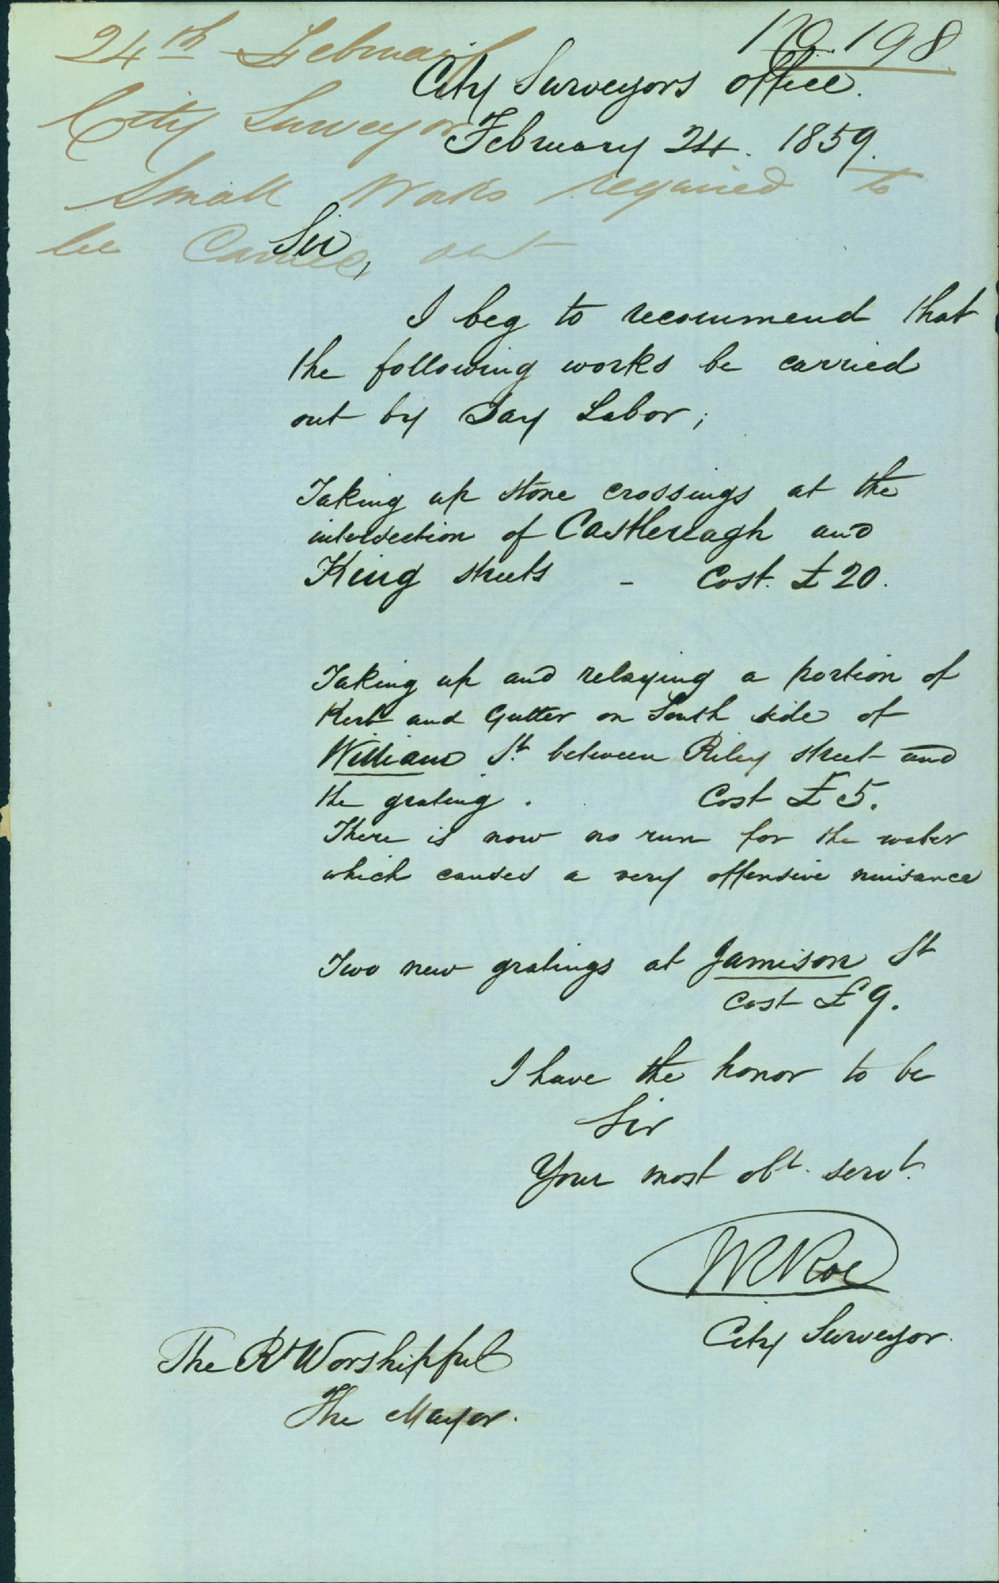 No. 198
24th February
City Surveyor
Small Works required to
be Carried out
City Surveyors Office.
February 24. 1859.
Sir,
I beg to recommend that
the following works be carried
out by Day Labor;
Taking up stone crossings at the
intersection of Castlereagh and
King streets - Cost. £20.
Taking up and relaying a portion of
Kerb and Gutter on South side of
William St. between Riley street and
the grating. Cost £5.
There is now no run for the water
which causes a very offensive nuisance
Two new gratings at Jamison St
Cost £9.
I have the honor to be
Sir
Your most obt. servt.
City Surveyor.
The Rt Worshipful
The Mayor.